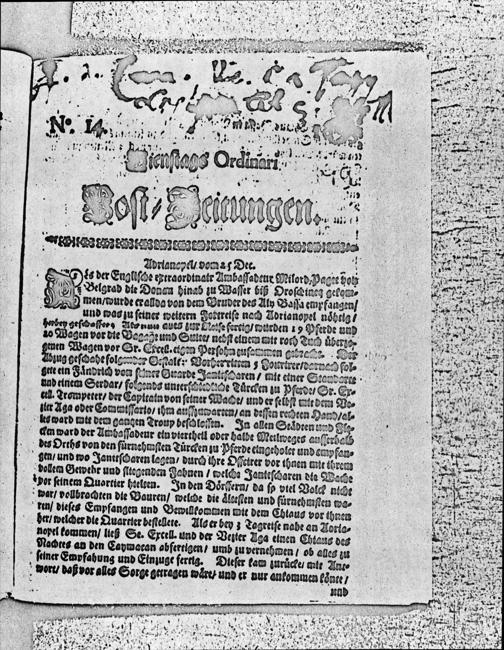 No. 14.
Dienstags Ordinari
Post-Zeitungen.
Adrianopel/ vom 25 Dec.
Als der Englische extraordinair Ambassadeur Milord Paget von
Belgrad die Donau hinab zu Wasser biß Oroschineq gekom-
men/ wurde er allda von dem Bruder des Aly Bassa empfangen/
und was zu seiner weitern Fortreise nach Adrianopel nöhtig/
herbey geschaffet; Als nun alles zur Reise fertig/ wurden 19 Pferde und
20 Wagen vor die Bagage und Suitte/ nebst einem mit roth Tuch überzo-
genen Wagen vor Sr. Excell. eigen Persohn zusammen gebracht. Der
Abzug geschahe folgender Gestalt: Vorher ritten 3 Courirer/ darnach fol-
gete ein Fändrich von seiner Guarde Janitscharen/ mit einer Standarte
und einem Serdar/ folgends unterschiedliche Türcken zu Pferde/ Sr. Ex-
cell. Trompeter/ der Capitain von seiner Wache/ und er selbst mit dem Ve-
zier Aga oder Commissario/ ihm aufzuwarten/ an dessen rechten Hand/ al-
les ward mit dem gantzen Troup beschlossen. In allen Städten und Fle-
cken ward der Ambassadeur ein viertheil oder halbe Meilweges ausserhalb
des Orths von den fürnehmsten Türcken zu Pferde eingeholet und empfan-
gen/ und wo Janitscharen lagen/ durch ihre Officirer vor ihnen mit ihrem
vollem Gewehr und fliegenden Fahnen/ welche Janitscharen die Wache
vor seinem Quartier hielten. In den Dörffern/ da so viel Volck nicht
war/ vollbrachten die Bauren/ welche die ältesten und fürnehmsten wa-
ren/ dieses Empfangen und Bewillkommen mit dem Chiaus vor ihnen
her/ welcher die Quartier bestellete. Als er bey 3 Tagreise nahe an Adria-
nopel kommen/ ließ Sr. Excell. und der Vezier Aga einen Chiaus des
Nachtes an den Caymacan abfertigen/ umb zu vernehmen/ ob alles zu
seiner Empfahung und Einzuge fertig. Dieser kam zurücke/ mit Ant-
wort/ daß vor alles Sorge getragen wäre/ und er nur ankommen könte/
und